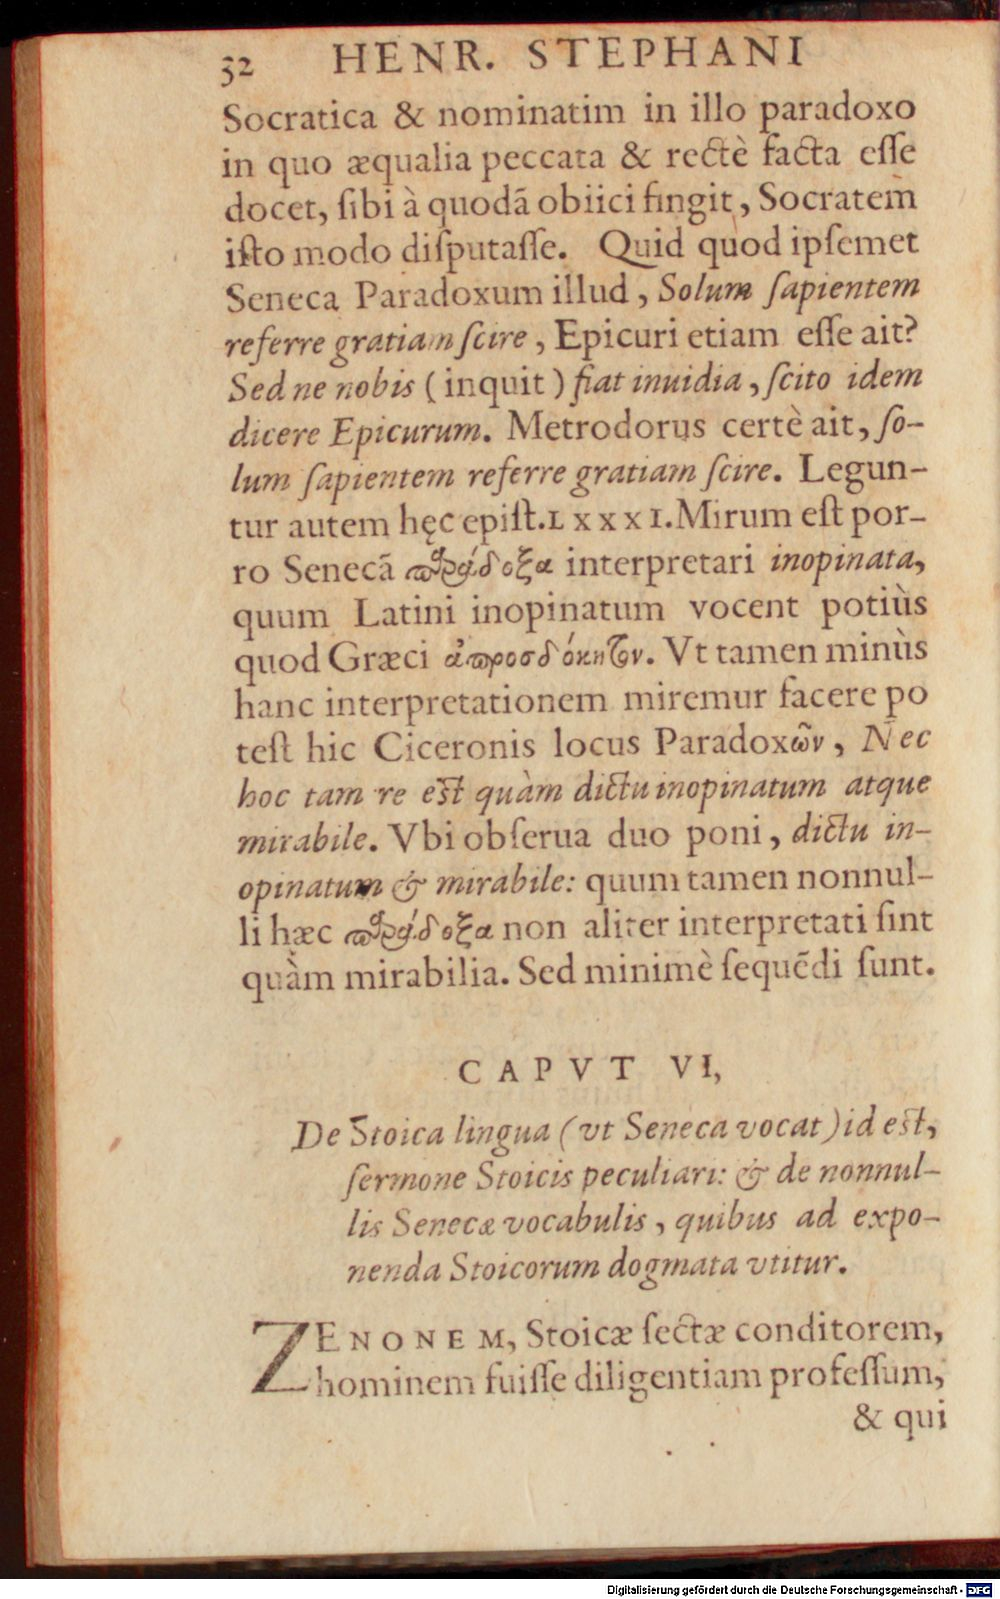 32 HENR. STEPHANI
Socratica & nominatim in illo paradoxo
in quo æqualia peccata & rectè facta eſſe
docet, ſibi à quodã obiici fingit, Socratem
iſto modo diſputaſſe. Quid quòd ipſemet
Seneca Paradoxum illud, Solum ſapientem
referre gratiam ſcire, Epicuri etiam eſſe ait?
Sed ne nobis (inquit) fiat inuidia, ſcito idem
dicere Epicurum. Metrodorus certè ait, ſo-
lum ſapientem referre gratiam ſcire. Legun-
tur autem hęc epiſt. LXXXI. Mirum eſt por-
ro Senecã παράδοξα interpretari inopinata,
quum Latini inopinatum vocent potiùs
quod Græci ἀπροσδόκητον. Vt tamen minùs
hanc interpretationem miremur facere po
teſt hic Ciceronis locus Paradoxῶν, Nec
hoc tam re eſt quàm dictu inopinatum atque
mirabile. Vbi obſerua duo poni, dictu in-
opinatum & mirabile: quum tamen nonnul-
li hæc παράδοξα non aliter interpretati ſint
quàm mirabilia. Sed minimè ſequẽdi ſunt.
CAPVT VI,
De Stoica lingua (vt Seneca vocat) id eſt,
ſermone Stoicis peculiari: & de nonnul-
lis Senecæ vocabulis, quibus ad expo-
nenda Stoicorum dogmata vtitur.
ZENONEM, Stoicæ ſectæ conditorem,
hominem fuiſſe diligentiam profeſſum,
& qui
Digitalisierung gefördert durch die Deutsche Forschungsgemeinschaft - DFG